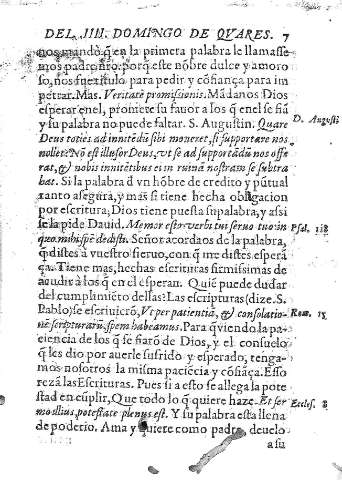 DEL IIII. DOMINGO DE QVARES. 7
nos mandò, q̃ en la primera palabra le llamasse
mos padre ñro: porq̃ este nõbre dulce y amoro
so, nos fuesse titulo para pedir y cõfiãça para im
petrar. Mas. Veritatẽ promissionis. Mãdanos Dios
esperar en el, promete su fauor a los q̃ en el se fiã
y su palabra no puede faltar. S. Augustin. Quare
D. Augusti
Deus toties ad innitẽdũ sibi moneret, si supportare nos
nollet? Nõ est illusor Deus, vt se ad supportãdũ nos offe
rat, & nobis innitẽtibus ei in ruinã nostram se subtra
hat. Si la palabra d vn hõbre de credito y pũtual
tanto asegura, y mas si tiene hecha obligacion
por escritura; Dios tiene puesta su palabra, y asi
se la pide Dauid. Memor esto verbi tui seruo tuo in
Psal. 118
quo mihi spẽ dedisti. Señor acordaos de la palabra,
q̃ distes a vuestro sieruo, con q̃ me distes esperã
ça. Tiene mas, hechas escrituras firmissimas de
acudir à los q̃ en el esperan. Quiẽ puede dudar
del cumplimiẽto dellas? Las escripturas (dize S.
Pablo) se escriuierõ, Vt per patientiã, & consolatio-
Rom. 15
nẽ scripturarũ, spem habeamus. Para q̃ viendo la pa-
ciencia de los q̃ se fiarõ de Dios, y el consuelo
q̃ les dio por auerle sufrido y esperado, tenga-
mos nosotros la misma paciẽcia y cõfiãça. Esso
rezã las Escrituras. Pues si a esto se allega la pote
stad en cũplir, Que todo lo q̃ quiere haze. Et ser
Eccles. 8
mo illius, potestate plenus est. Y su palabra esta llena
de poderio. Ama y quiere como padre, deuelo
a su